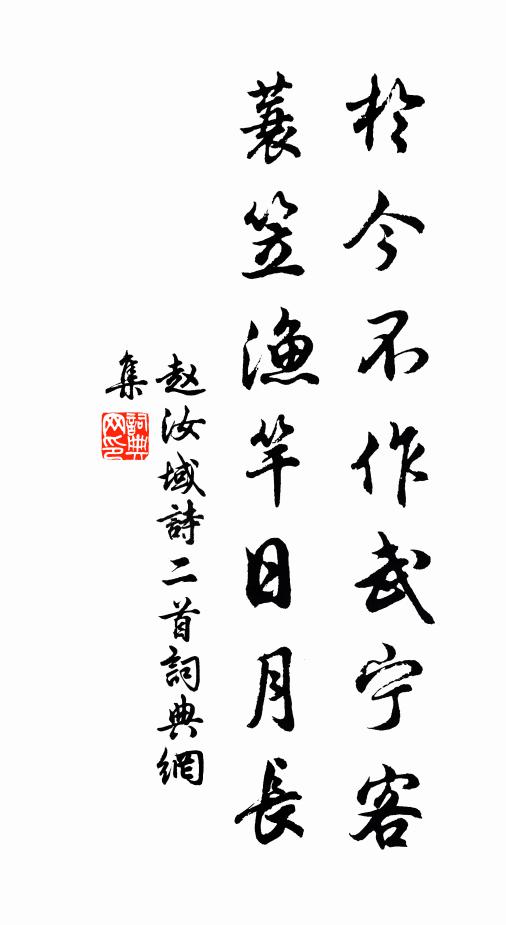 於今不作武宁客
蓑笠漁竿日月長
赵汝域詩二首詞典網
集
詞典
网印